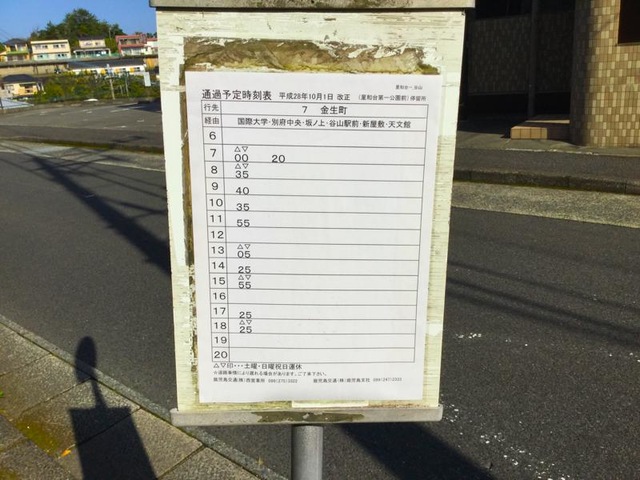 星和台－谷山
通過予定時刻表 平成28年10月1日 改正 （星和台第一公園前）停留所
行先 7 金生町
経由 国際大学・別府中央・坂ノ上・谷山駅前・新屋敷・天文館
6
7 △▽00 20
8 △▽35
9 40
10 35
11 55
12
13 △▽05
14 25
15 △▽55
16
17 25
18 △▽25
19
20
△▽印・・・土曜・日曜祝日運休
※道路事情により遅れる場合があります。ご了承下さい。
鹿児島交通(株)